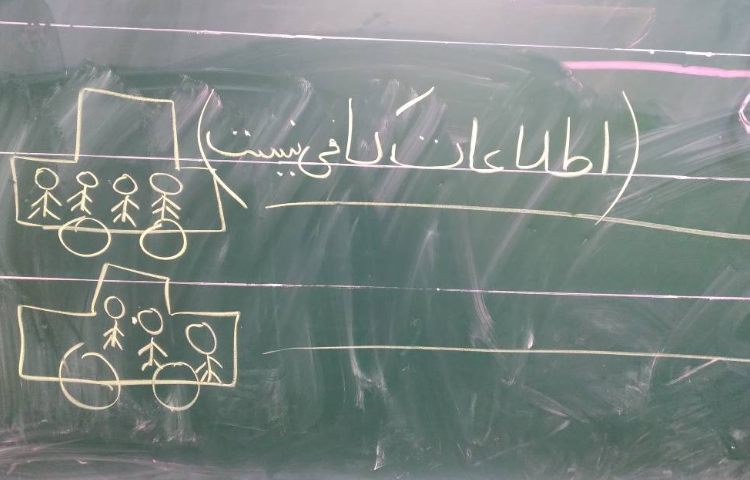 (اطلاعات کافی نیست)